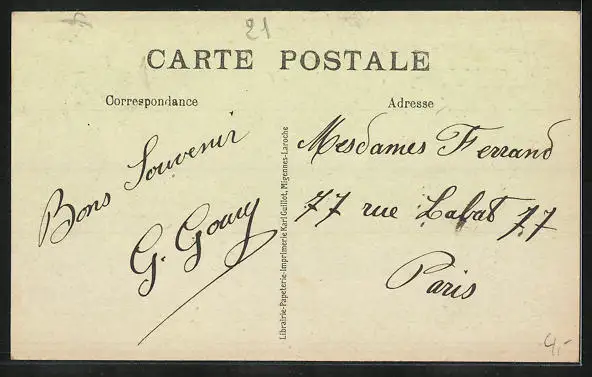 21
CARTE POSTALE
Correspondance
Bons Souvenir
G. Goury
Librairie-Papeterie-Imprimerie Karl Guillot, Migennes-Laroche
Adresse
Mesdames Ferrand
77 rue Labat 77
Paris
4,-